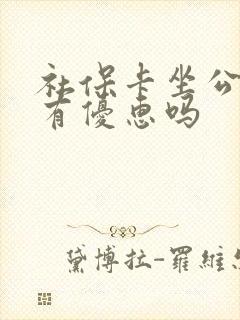 社保卡坐公
有優惠吗
黛博拉-羅維